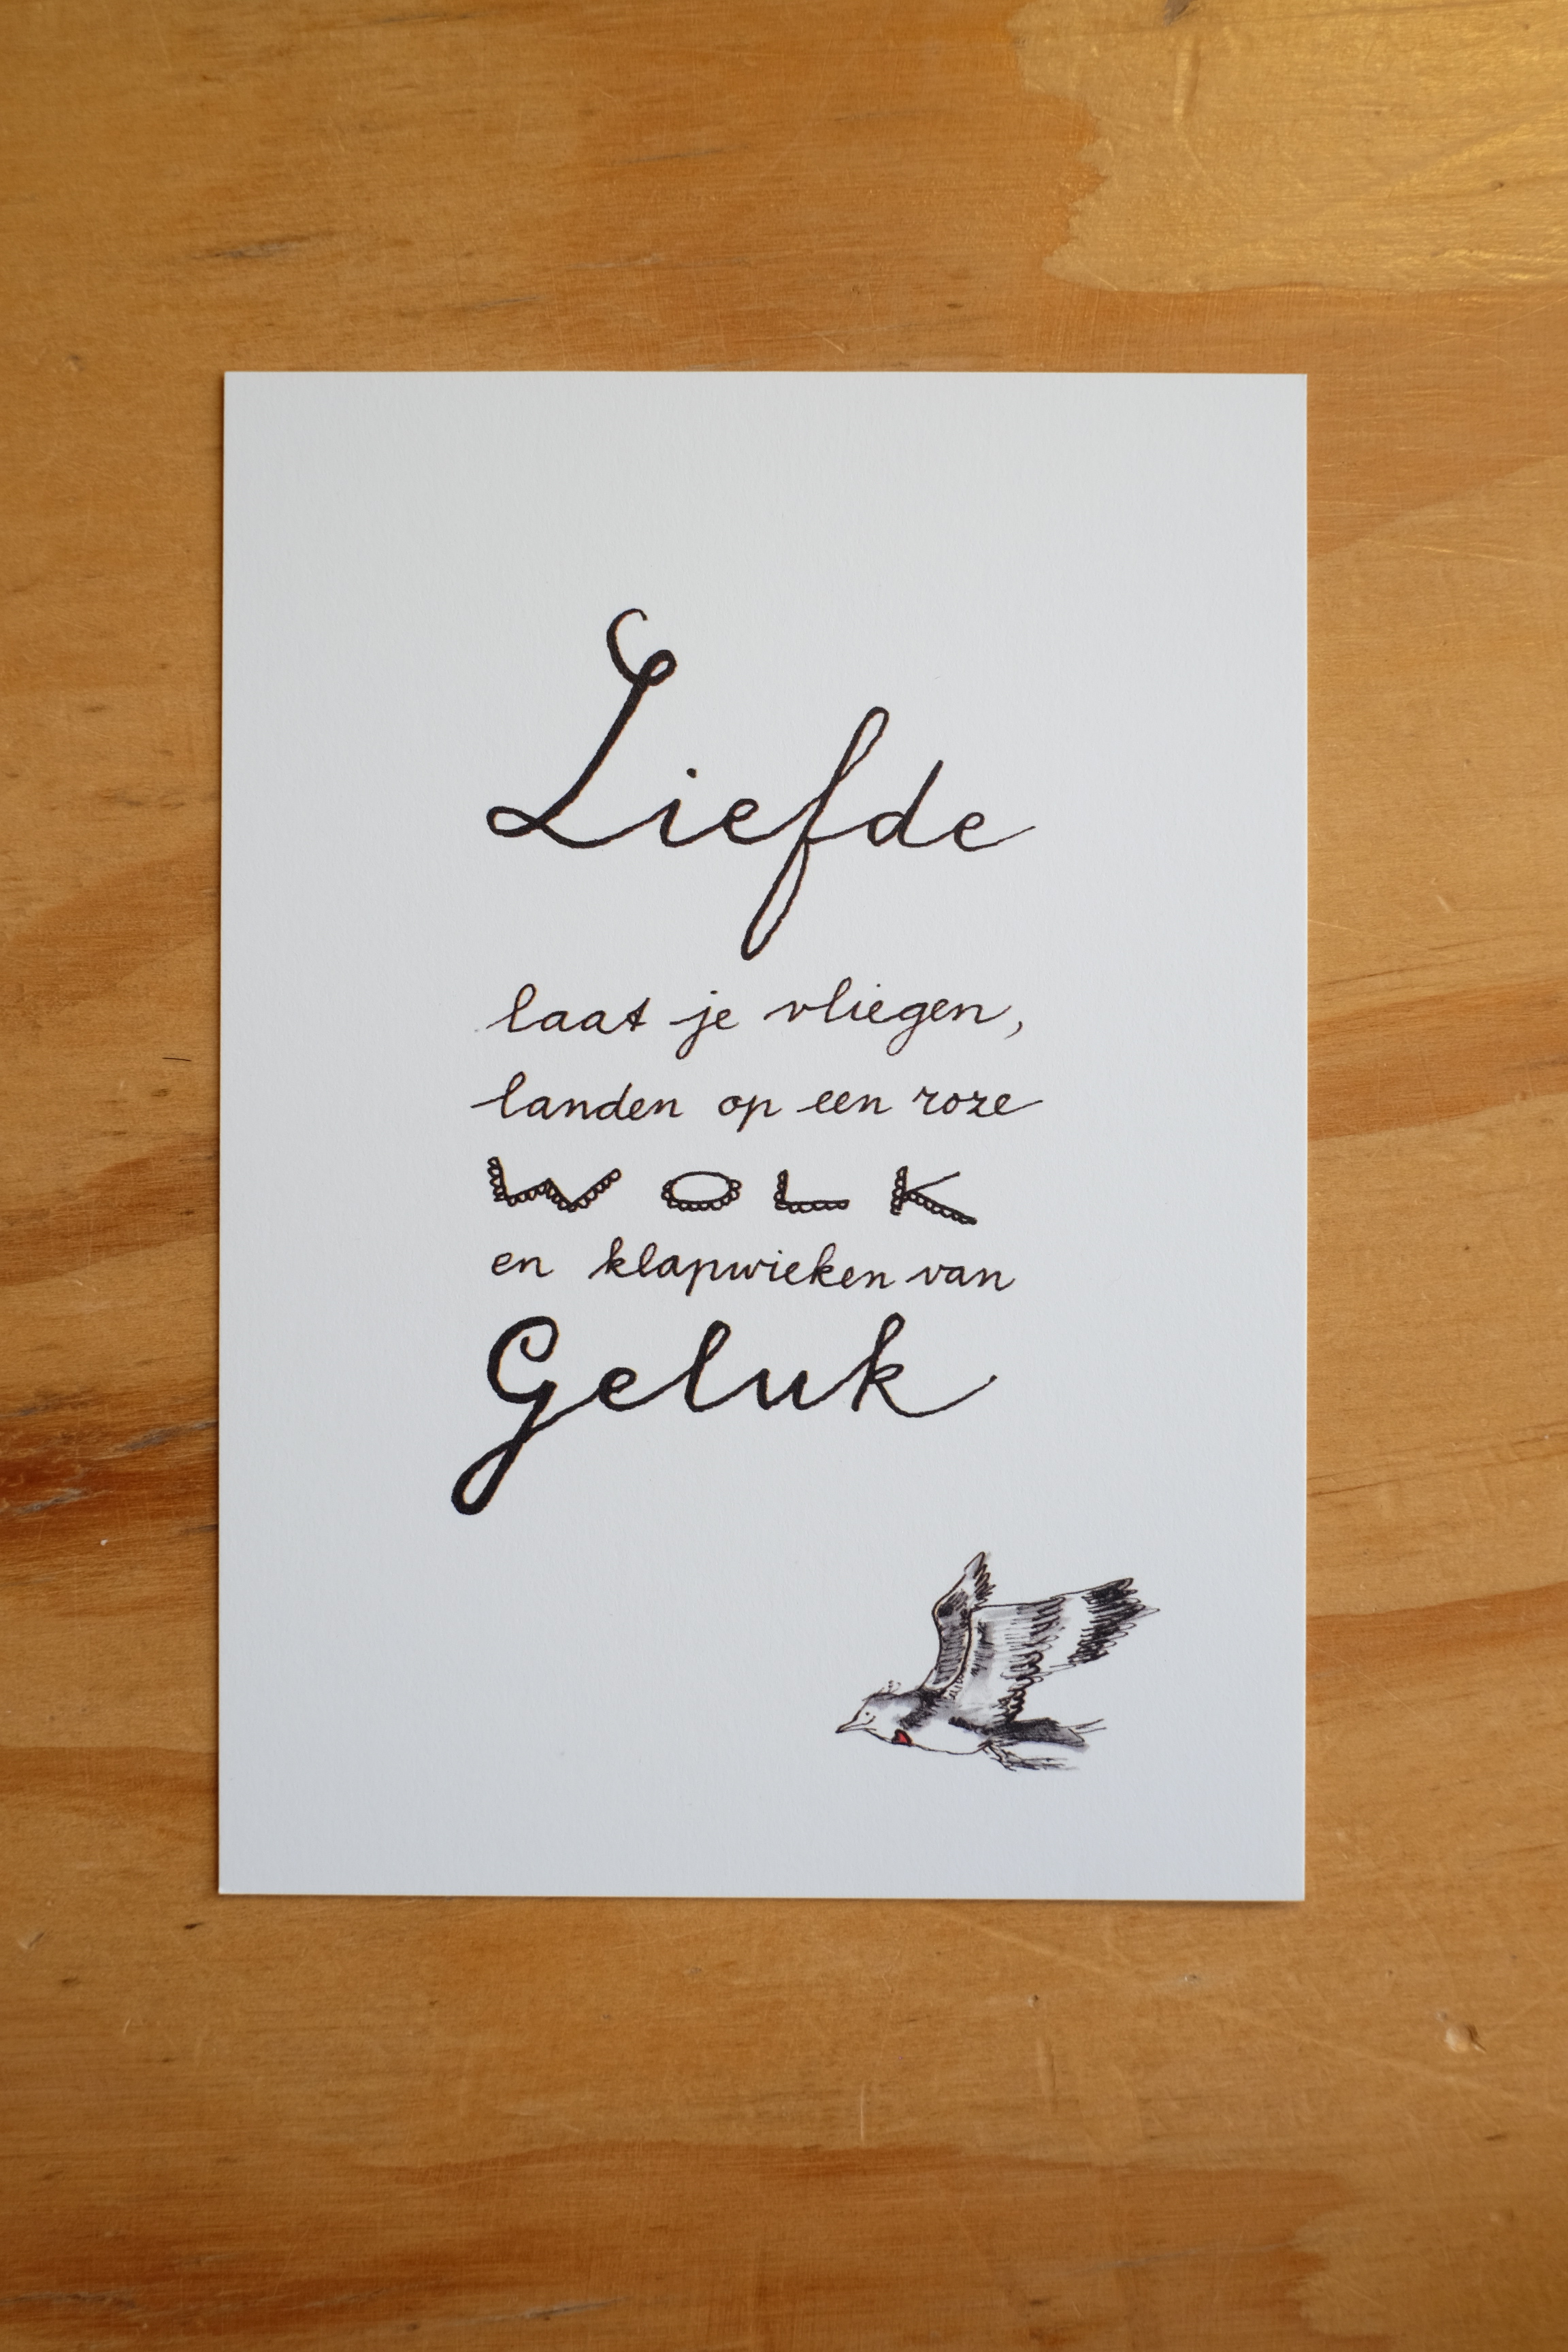 Liefde
laat je vliegen,
landen op een roze
WOLK
en klapwieken van
Geluk